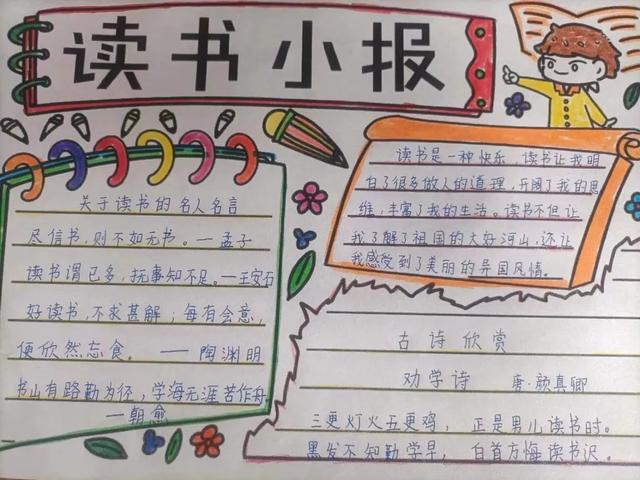 读书小报
关于读书的名人名言
尽信书，则不如无书。—孟子
读书谓已多，抚事知不足。—王安石
好读书，不求甚解；每有会意，
便欣然忘食。——陶渊明
书山有路勤为径，学海无涯苦作舟
—朝愈
读书是一种快乐，读书让我明
白了很多做人的道理，开阔了我的思
维，丰富了我的生活。读书不但让
我了解了祖国的大好河山，还让
我感受到了美丽的异国风情。
古诗欣赏
劝学诗 唐·颜真卿
三更灯火五更鸡，正是男儿读书时。
黑发不知勤学早，白首方悔读书迟。